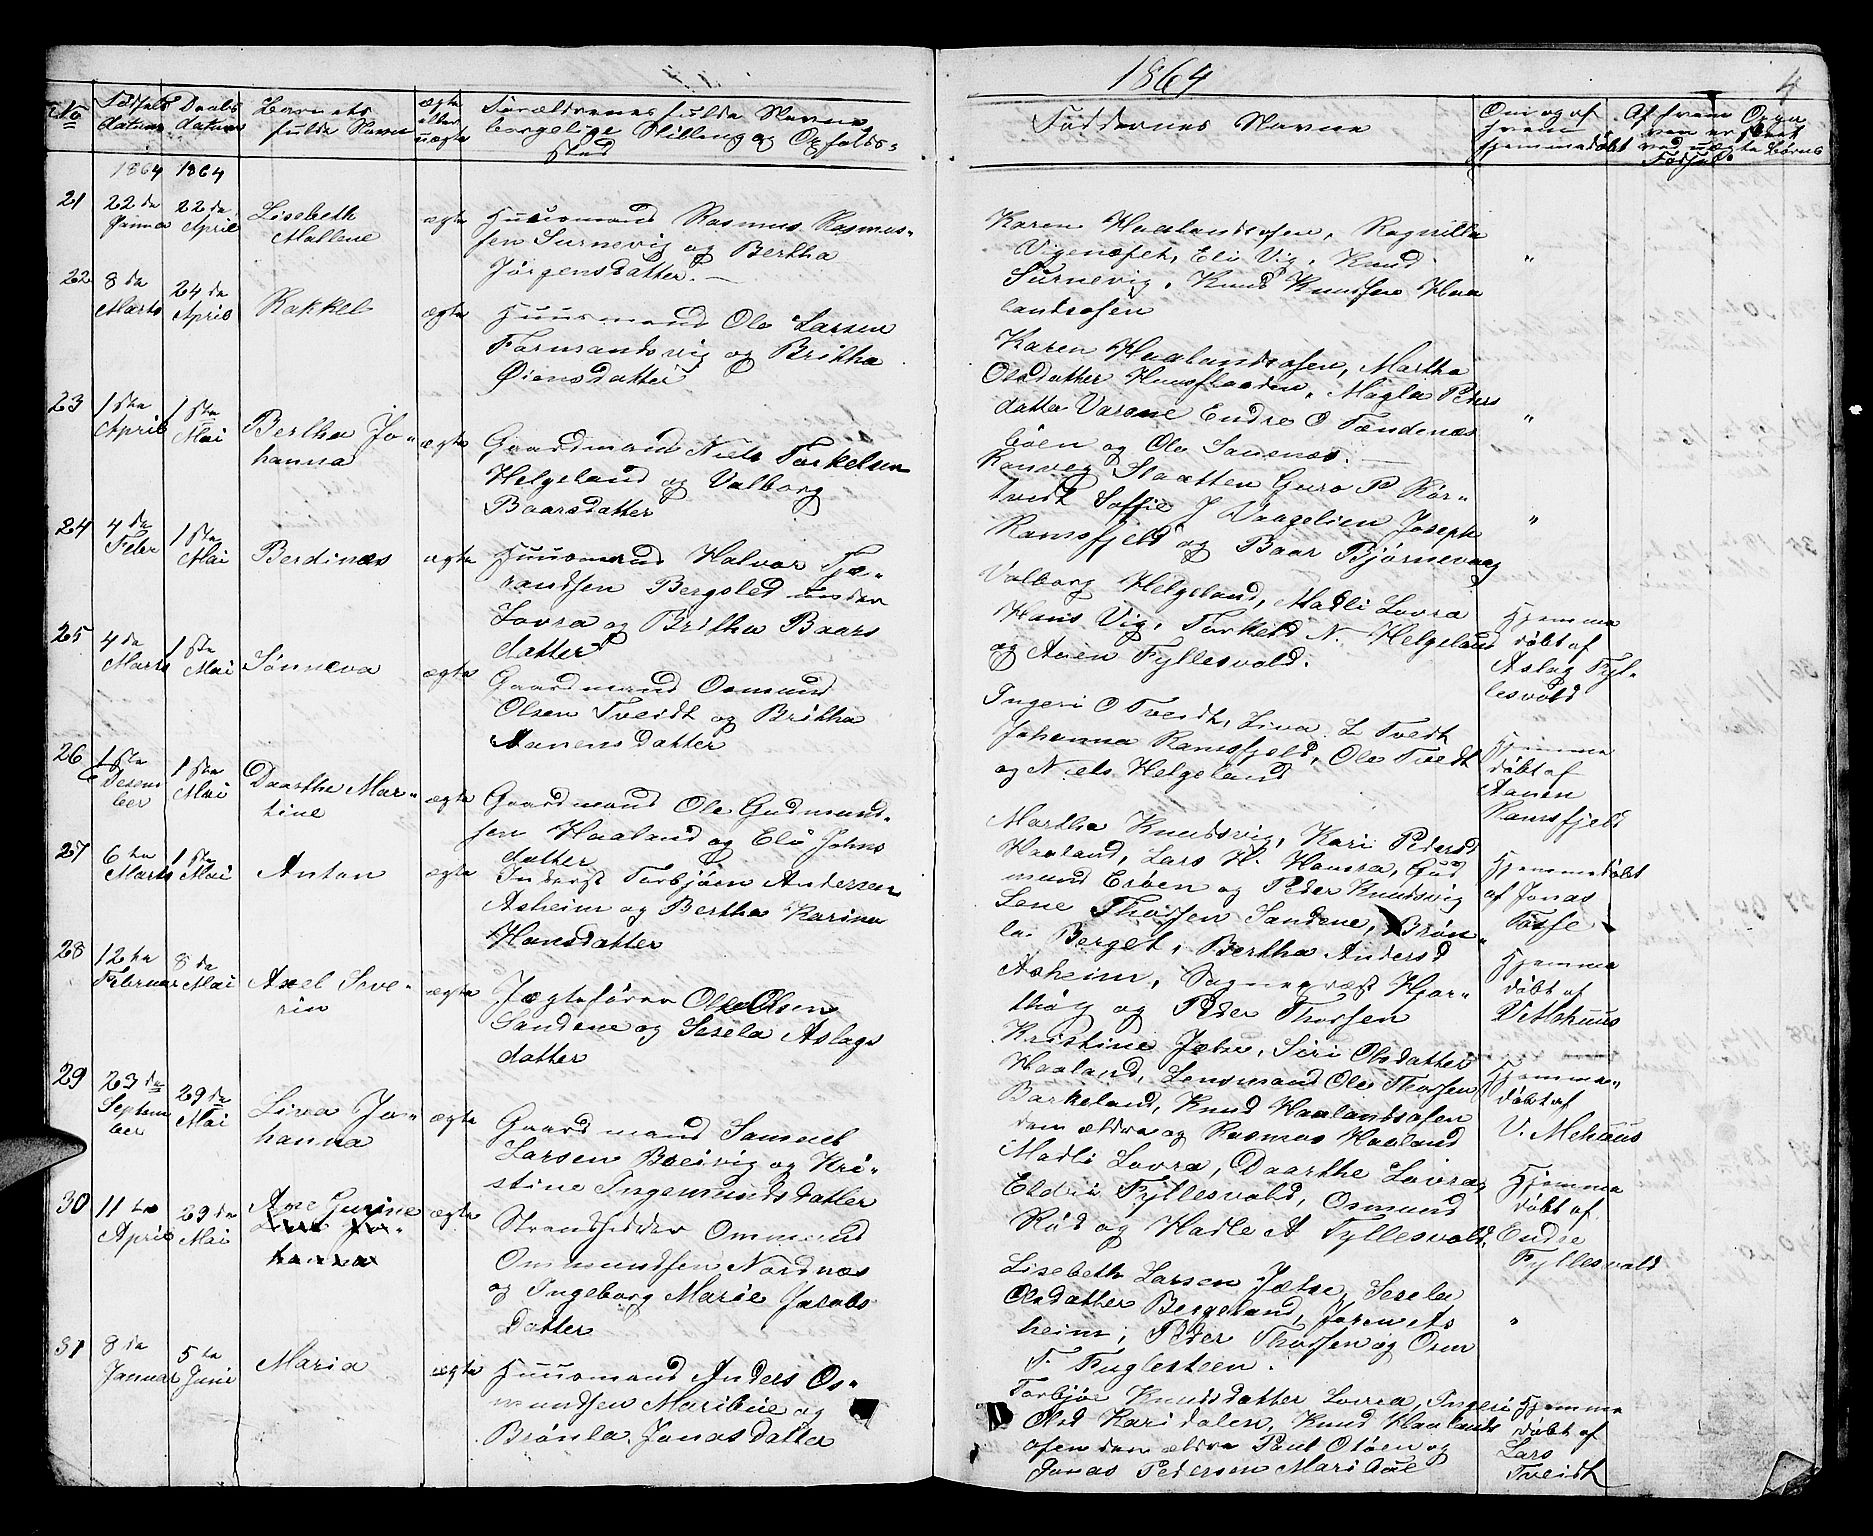 1864
4
No
Fødsels
datum
Daabs
datum
Barnets
fulde Navn
ægte
eller
uægte
Forældrenes fulde Navne
borgelige Stilling og Opholds-
sted
Faddernes Navne
Om og af
hvem
hjemmedøbt
Af hvem Opga
ven er skeet
ved uægte Børns
Fødsel
1864 1864
21
22 de
Januar
22 de
April
Lisebeth
Mallene
ægte
Huusmand Rasmus Rasmus-
sen Surnevig og Bertha
Jørgensdatter. —
Karen Haalandsosen, Ragnilla
Vigenæset, Eli Vig, Knud
Surnevig, Knud Knudsen Haa
landsosen
"
22
8 de
Marts
24 de
April
Rakkel
ægte
Huusmand Ole Larsen
Formandsvig og Britha
Øiensdatter
Karen Haalandsosen, Martha
Olsdatter Huusflaaden, Magla Peders
datter Varane Endre O Tændenæs
bøen og Ole Sannæs. —
"
23
1 ste
April
1 ste
Mai
Bertha Jo-
hanna
ægte
Gaardmand Niels Torkelsen
Helgeland og Valborg
Baarsdatter
Ranveg Slaatten Guro P Rør-
tvedt Soffie J Vaagelien Joseph
Ramsfjeld og Baar Bjørnevaag
"
24
4 de
Feber
1 ste
Mai
Berdinæs
ægte
Huusmand Halvor Tjæ-
randsen Bergsled under
Lovra og Britha Baars
datter
Valborg Helgeland, Madli Lovra
Hans Vig, Torkeld N. Helgeland
og Anen Fyllesvold.
Hjemme
døbt af
Aslag Fyl-
lesvold
25
4 de
Marts
1 ste
Mai
Sønneva
ægte
Gaardmand Osmund
Olsen Tveidt og Britha
Aanensdatter
Ingeri O Tveidt, Liva L Tvedt
Johanna Ramsfjeld, Ole Tvedt
og Niels Helgeland
Hjemme
døbt af
Aanen
Ramsfjeld
26
1 ste
Desem
ber
1 ste
Mai
Daarthe Mar-
tine
ægte
Gaardmand Ole Gudmund-
sen Haaland og Eli Johns
datter
Martha Knudsvig, Kari Pedersd
Haaland, Lars H. Hausra, Gud
mund Erøen og Peder Knudsvig
Hjemmedøbt
af Jonas
Fosse
27
6 te
Marts
1 ste
Mai
Anton
ægte
Inderst Torbjørn Andersen
Asheim og Bertha Karina
Hansdatter
Lene Thorsen Sandene, Brøn-
la Berget, Bertha Andersd
Asheim, Sogneprest Hjor-
thøy og Peder Thorsen
Hjemme
døbt af
V Mehuus
28
12 te
Februar
8 de
Mai
Axel Seve-
rin
ægte
Jægtefører Ole Olsen
Sandene og Sesela Aslags
datter
Kristine Jelse, Siri Olsdatter
Haaland, Lensmand Ole Thorsen
Barkeland, Knud Haalandsosen
den ældre og Rasmus Haaland
Hjemme-
døbt af
V. Mehuus
29
23 de
Septem
ber
29 de
Mai
Liva Jo-
hanna
ægte
Gaardmand Samuel
Larsen Breivig og Kri-
stine Ingemundsdatter
Madli Lovra, Daarthe Lovra,
Eldri Fyllesvold, Osmund
Rød og Hadle A Fyllesvold,
Hjemme
døbt af
Endre
Fyllesvold
30
11 te
April
29 de
Mai
Ane Gurine
Liva Jo-
hanna
ægte
Strandsidder Ommund
Ommundsen Nordnæs
og Ingeborg Marie Jacobs
datter
Lisebeth Larsen Jelse, Sesela
Olsdatter Bergeland, Joren As
heim, Peder Thorsen og Osm
T. Fuglesteen.
"
31
8 de
Januar
5 te
Juni
Maria
ægte
Huusmand Anders Os-
mundsen Maribüe og
Brønla Jonasdatter
Torbjør Knudsdatter Lovra, Ingeri
Olsd Karidalen, Knud Haalands
osen den ældre Paul Otøen og
Jonas Pedersen Maribüe
Hjemme
døbt af
Lars
Tveidt